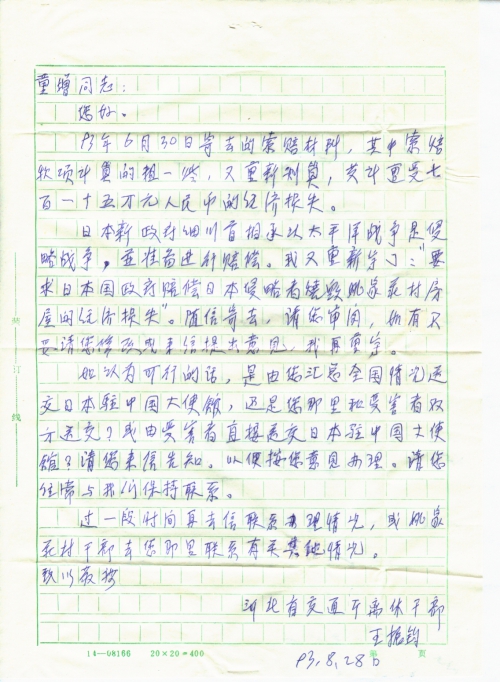 童增同志：
您好。
93年6月30日寄去的索赔材料，其中索赔
款项计算的粗一些，又重新利算，共计遭受七
百一十五万元人民币的经济损失。
日本新政府细川首相承认太平洋战争是侵
略战争，并准备进行赔偿。我又重新写了："要
求日本国政府赔偿日本侵略者烧毁姚家庄村房
屋的经济损失"。随信寄去，请您审阅，如有不
妥请您修改或来信提出意见，我再重写。
如认为可行的话，是由您汇总全国情况送
交日本驻中国大使馆，还是您那里和受害者双
方送交？或由受害者直接送交日本驻中国大使
馆？请您来信告知。以便按您意见办理。请您
经常与我们保持联系。
过一段时间再去信联系办理情况，或姚家
庄村干部去您那里联系有关其他情况。
致以敬礼
河北省交通厅离休干部
王振钧
93.8.28日
装 订 线
14—08166 20×20=400 第 页